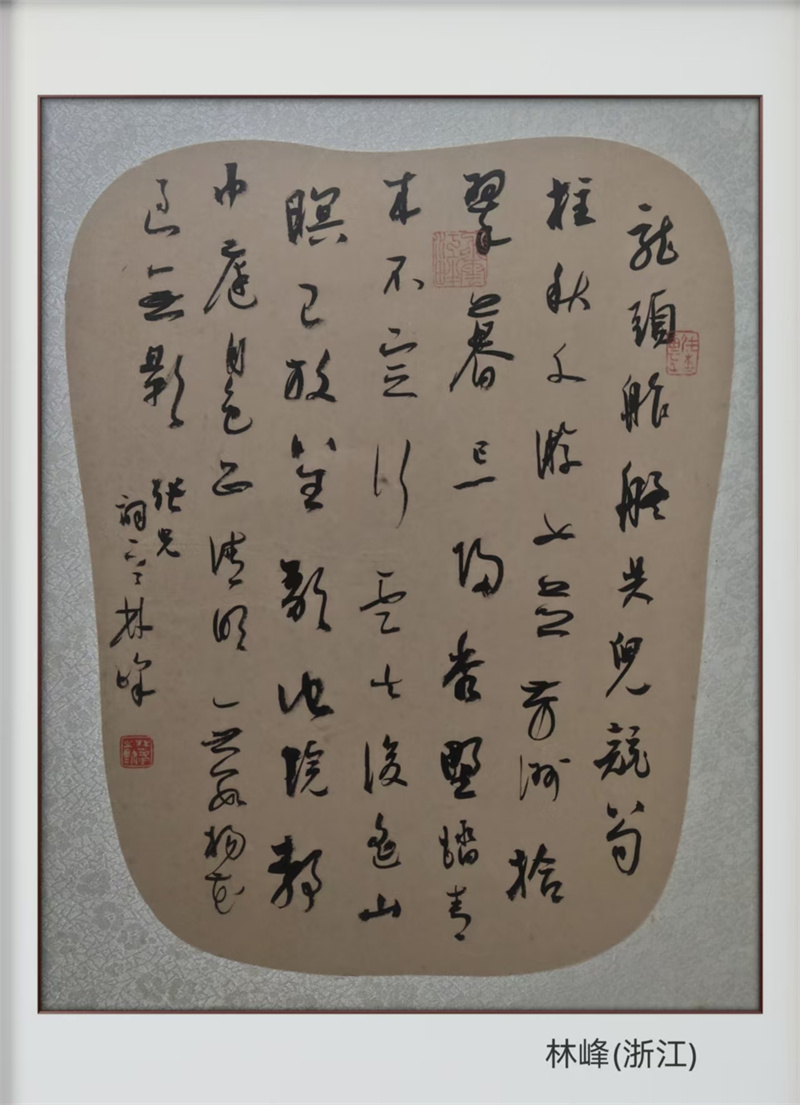 龍頭舴艋吴兒競筍
柱秋千遊女並芳洲拾
翠暮忘歸秀野踏青
来不定行雲去後遥山
暝已放笙歌池院静
中庭月色正清明無數楊花
過無影
張先
詞 林峰
林峰(浙江)